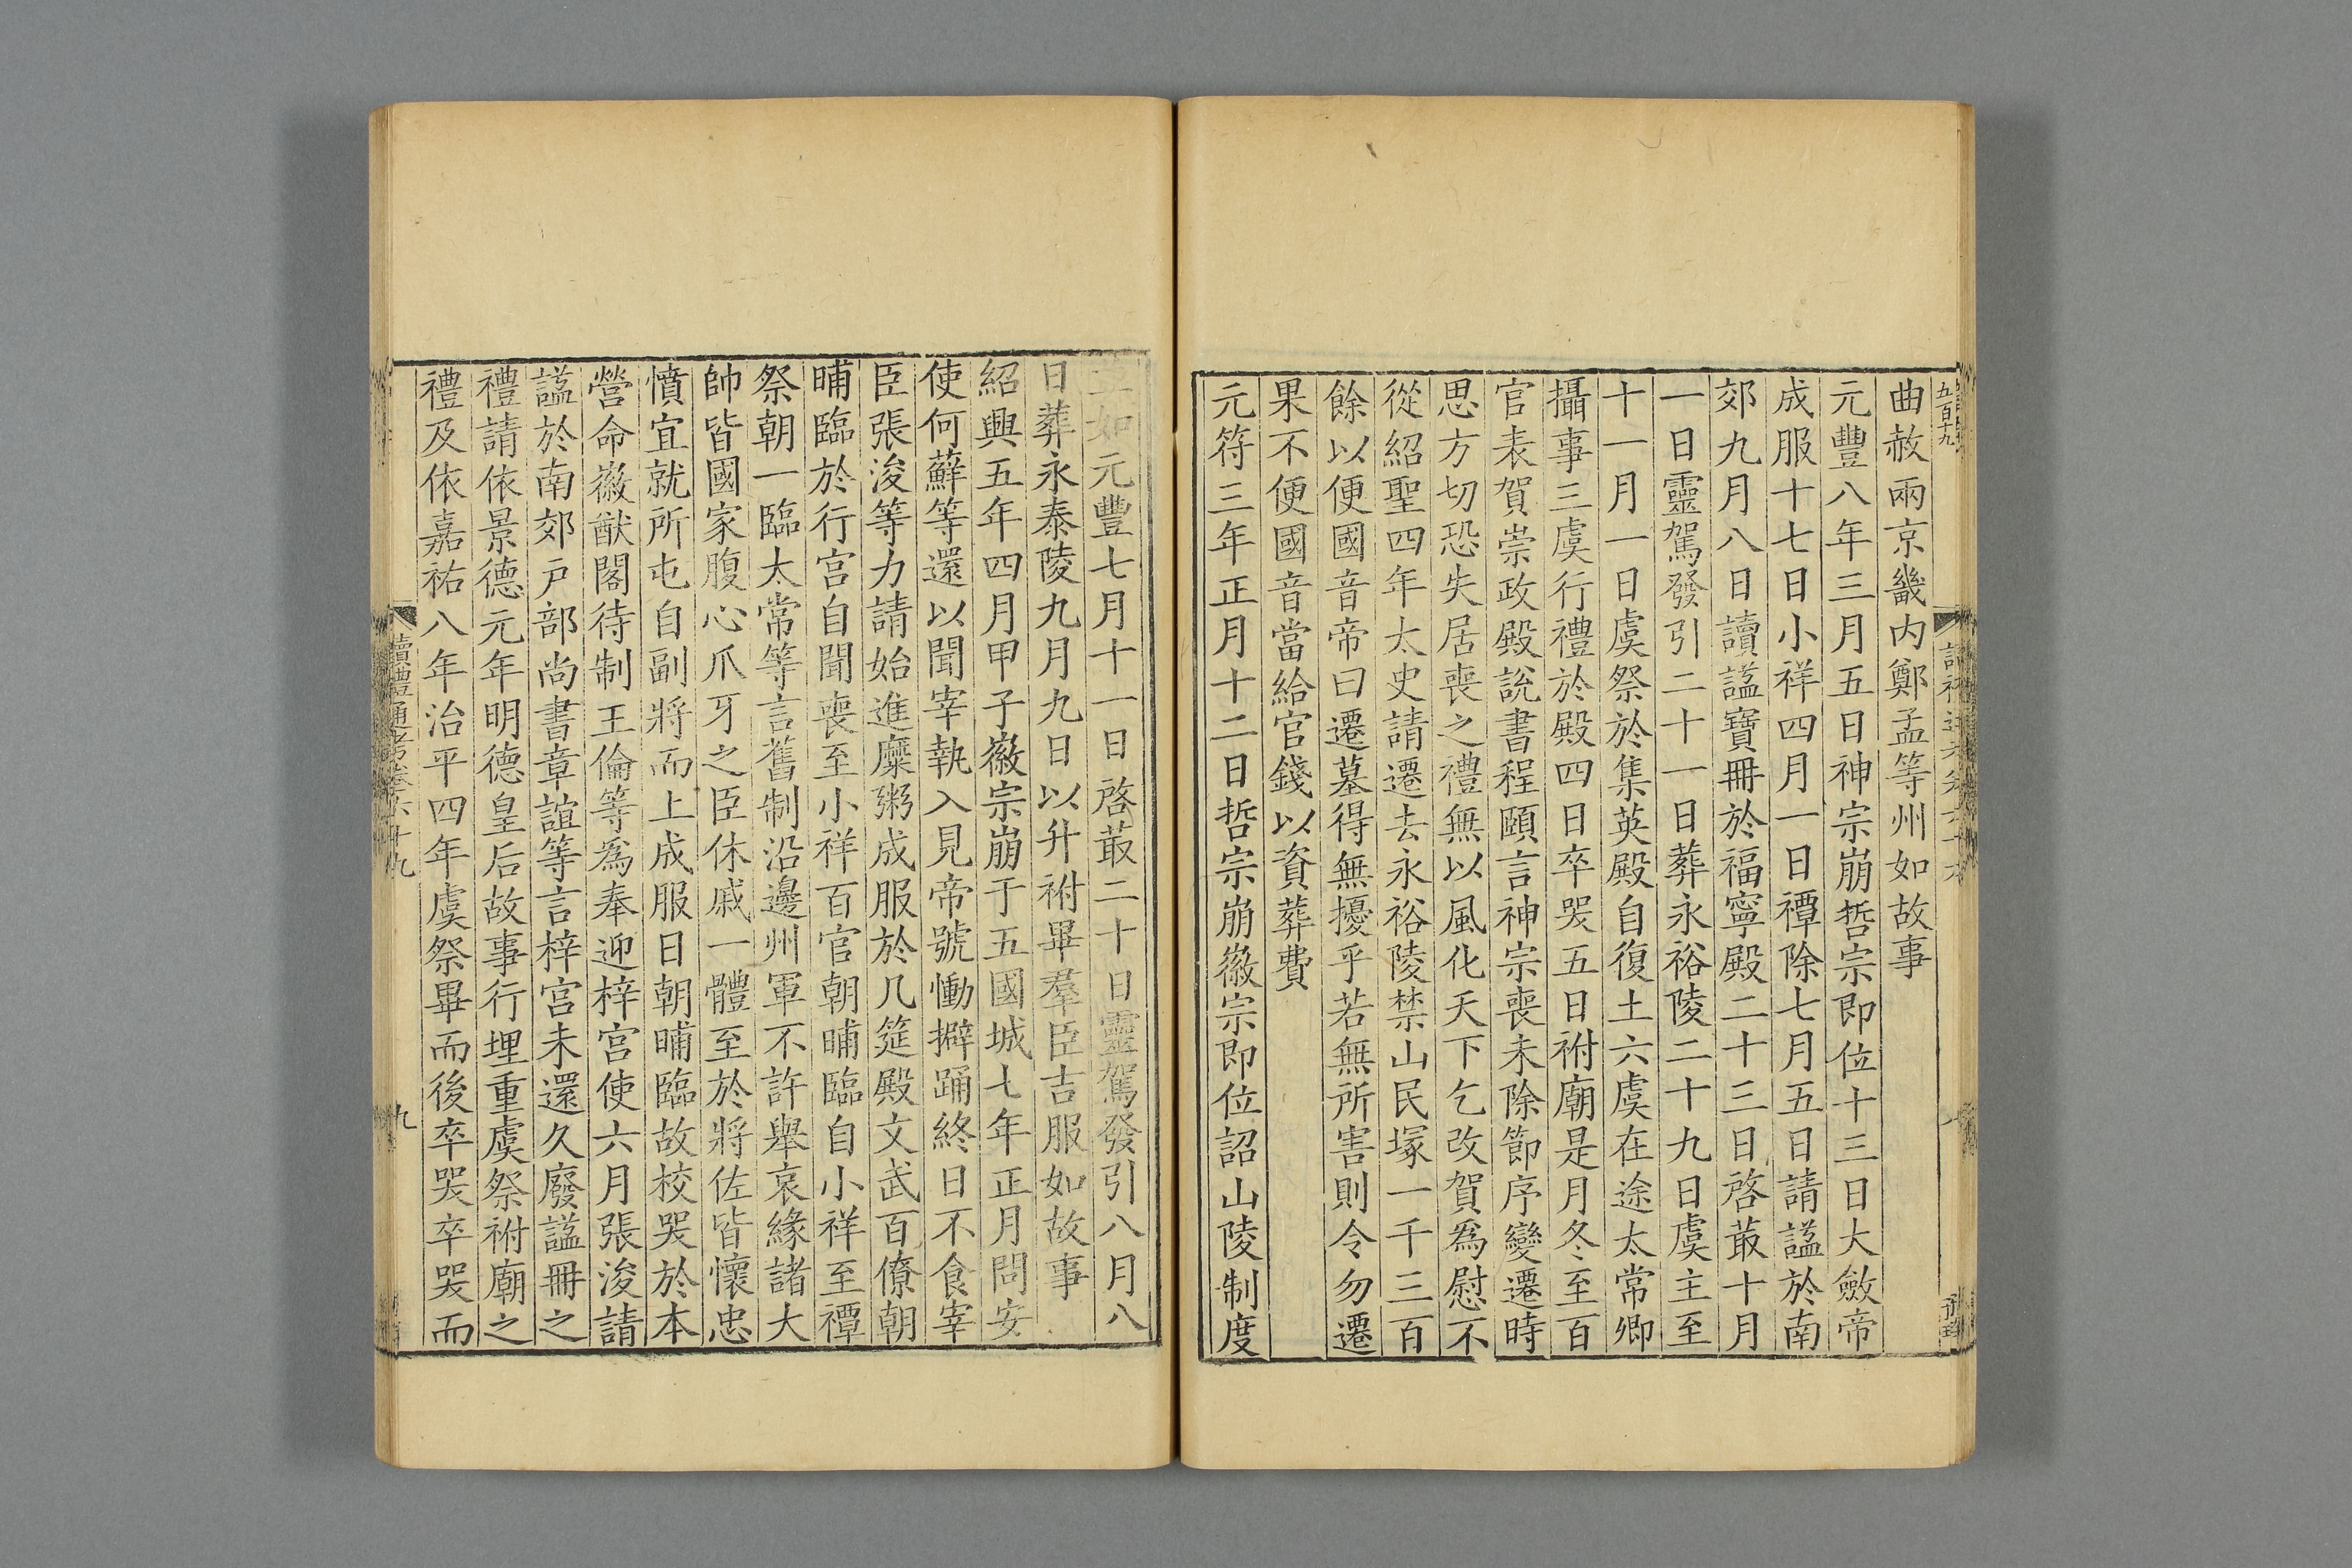 五百十九
曲赦兩京畿内鄭孟等州如故事
元豐八年三月五日神宗崩哲宗即位十三日大斂帝
成服十七日小祥四月一日禫除七月五日請謚於南
郊九月八日讀謚寶冊於福寧殿二十三日啓菆十月
一日靈駕發引二十一日葬永裕陵二十九日虞主至
十一月一日虞祭於集英殿自復土六虞在途太常卿
攝事三虞行禮於殿四日卒哭五日祔廟是月冬至百
官表賀崇政殿說書程頤言神宗喪未除節序變遷時
思方切恐失居喪之禮無以風化天下乞改賀爲慰不
從紹聖四年太史請遷去永裕陵禁山民塚一千三百
餘以便國音帝曰遷墓得無擾乎若無所害則令勿遷
果不便國音當給官錢以資葬費
元符三年正月十二日哲宗崩徽宗即位詔山陵制度
如元豐七月十一日啓菆二十日靈駕發引八月八
日葬永泰陵九月九日以升祔畢羣臣吉服如故事
紹興五年四月甲子徽宗崩于五國城七年正月問安
使何蘚等還以聞宰執入見帝號慟擗踊終日不食宰
臣張浚等力請始進糜粥成服於几筵殿文武百僚朝
晡臨於行宫自聞喪至小祥百官朝晡臨自小祥至禫
祭朝一臨太常等言舊制沿邊州軍不許舉哀緣諸大
帥皆國家腹心爪牙之臣休戚一體至於將佐皆懷忠
憤宜就所屯自副將而上成服日朝晡臨故校哭於本
營命徽猷閣待制王倫等爲奉迎梓宫使六月張浚請
謚於南郊戸部尚書章誼等言梓宫未還久廢謚冊之
禮請依景德元年明德皇后故事行埋重虞祭祔廟之
禮及依嘉祐八年治平四年虞祭畢而後卒哭卒哭而
讀禮通考卷六十九
九